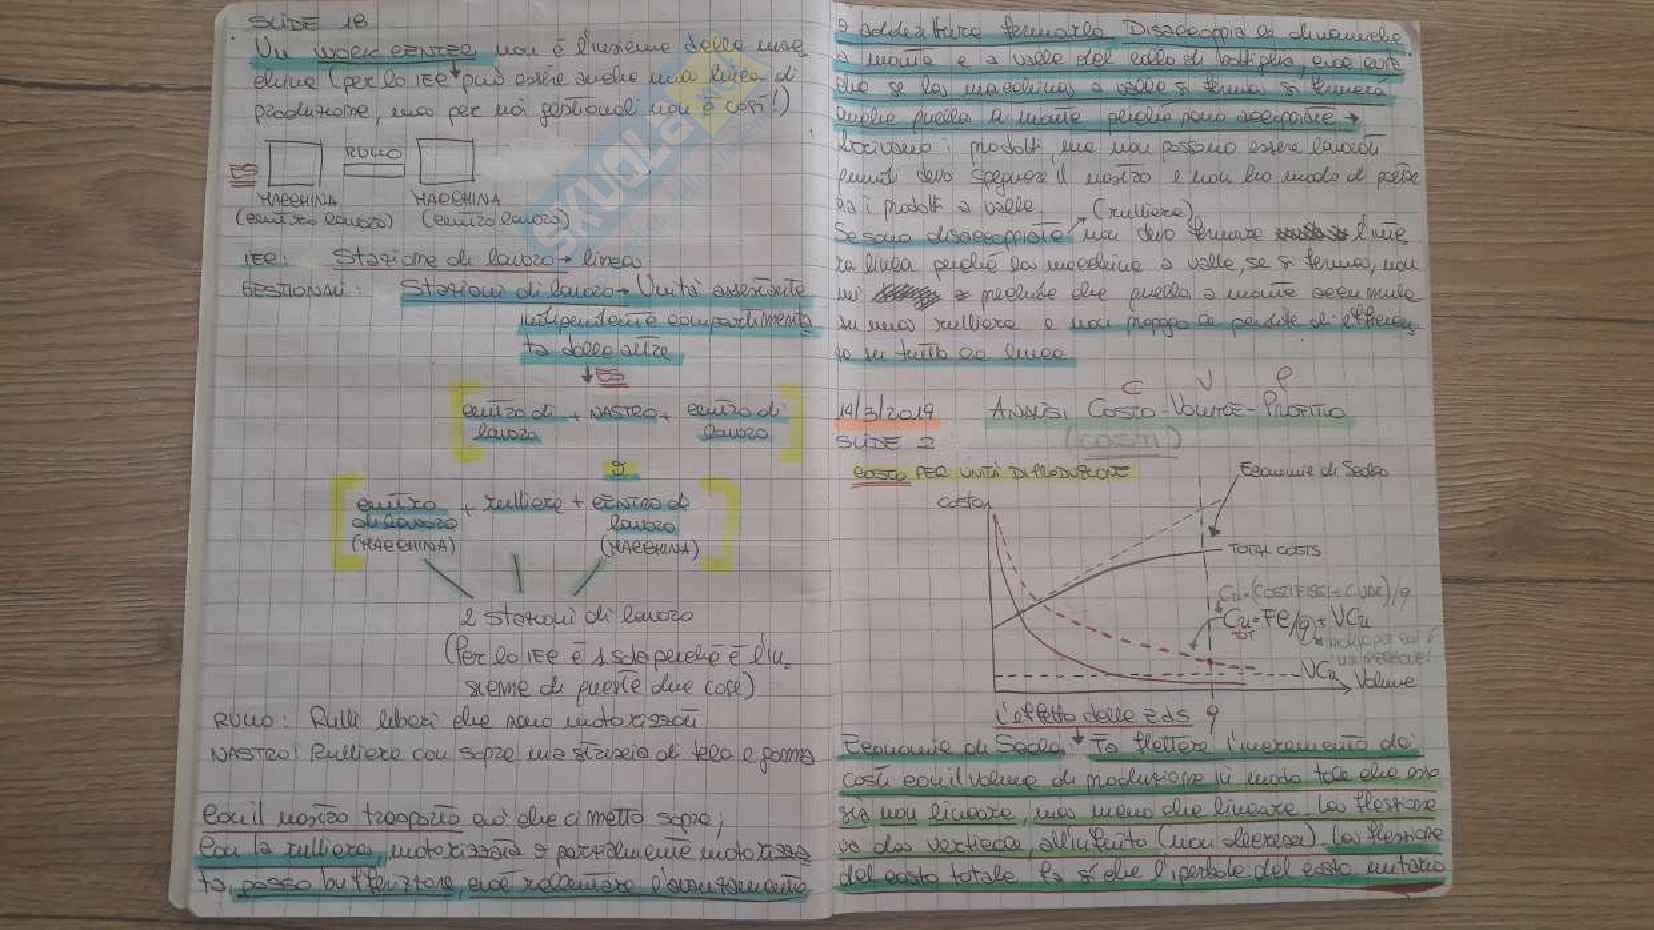 SLIDE 18
Un WORK CENTER non è l'insieme delle mac
chine (per lo IEC può essere anche una linea di
produzione, ma per noi gestionali non è così!)
ES
RULLO
MACCHINA
MACCHINA
(centro lavoro)
(centro lavoro)
IEC: Stazione di lavoro → linea
GESTIONALI: Stazioni di lavoro → Unità
indipendente
te dalle altre
↓ ES
[centro di lavoro + NASTRO + centro di lavoro]
[centro di lavoro (MACCHINA) + rulliera + CENTRO di lavoro (MACCHINA)]
2 stazioni di lavoro
(Per lo IEC è 1 sola perché è l'in-
sieme di queste due cose)
RULLO: Rulli liberi che sono motorizzati
NASTRO: Rulliera con sopra una striscia di tela e gomma
Con il nastro trasporto ciò che ci metto sopra;
Con la rulliera, motorizzata o parzialmente motorizza
ta, posso bufferizzare, cioè rallentare l'avanzamento
o addirittura fermarlo. Disaccoppia le dinamiche
a monte e a valle del collo di bottiglia, cioè
che se la macchina a valle si ferma si fermerà
anche quella a monte perché sono accoppiate →
arrivano i prodotti, ma non possono essere lavorati
quindi devo spegnere il nastro e non ho modo di
i prodotti a valle
(rulliera)
Se sono disaccoppiate non devo fermare l'inte
ra linea perché la macchina a valle, se si ferma, non
mi preclude che quella a monte accumula
su una rulliera e non propago le perdite di efficien
za su tutta la linea
C V P
14/3/2019 ANALISI COSTO-VOLUME-PROFITTO
SLIDE 2 (COSTI)
COSTO PER UNITÀ DI PRODUZIONE
Economie di Scala
costo
TOTAL COSTS
Cu=(COSTI FISSI+C.VAR)/q
Cu=FC/q+VCu
TOT
VCu
Volume
q
L'effetto delle EdS
Economie di Scala → Fa flettere l'incremento dei
costi con il volume di produzione in modo tale che esso
sia non lineare, ma meno che lineare. La flessione
va da vertice, all'infinito (non decresce). La flessione
del costo totale fa sì che l'iperbole del costo unitario